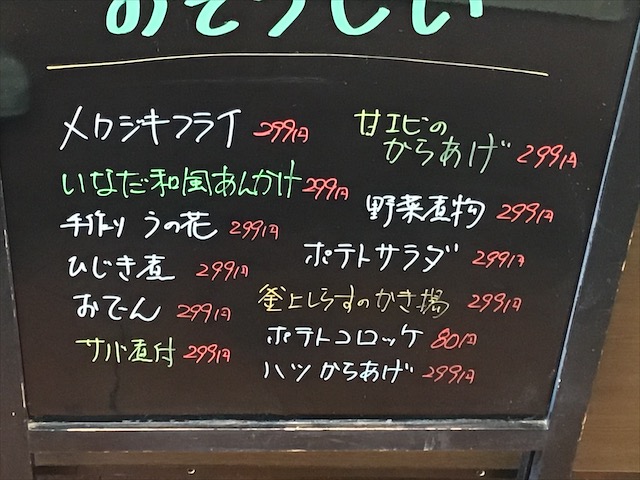 おそうじい
メロジキフライ 299円
いなだ和風あんかけ 299円
手作り うの花 299円
ひじき煮 299円
おでん 299円
サバ煮付 299円
甘エビの
からあげ 299円
野菜煮物 299円
ポテトサラダ 299円
釜上しらすのかき揚 299円
ポテトコロッケ 80円
ハツからあげ 299円